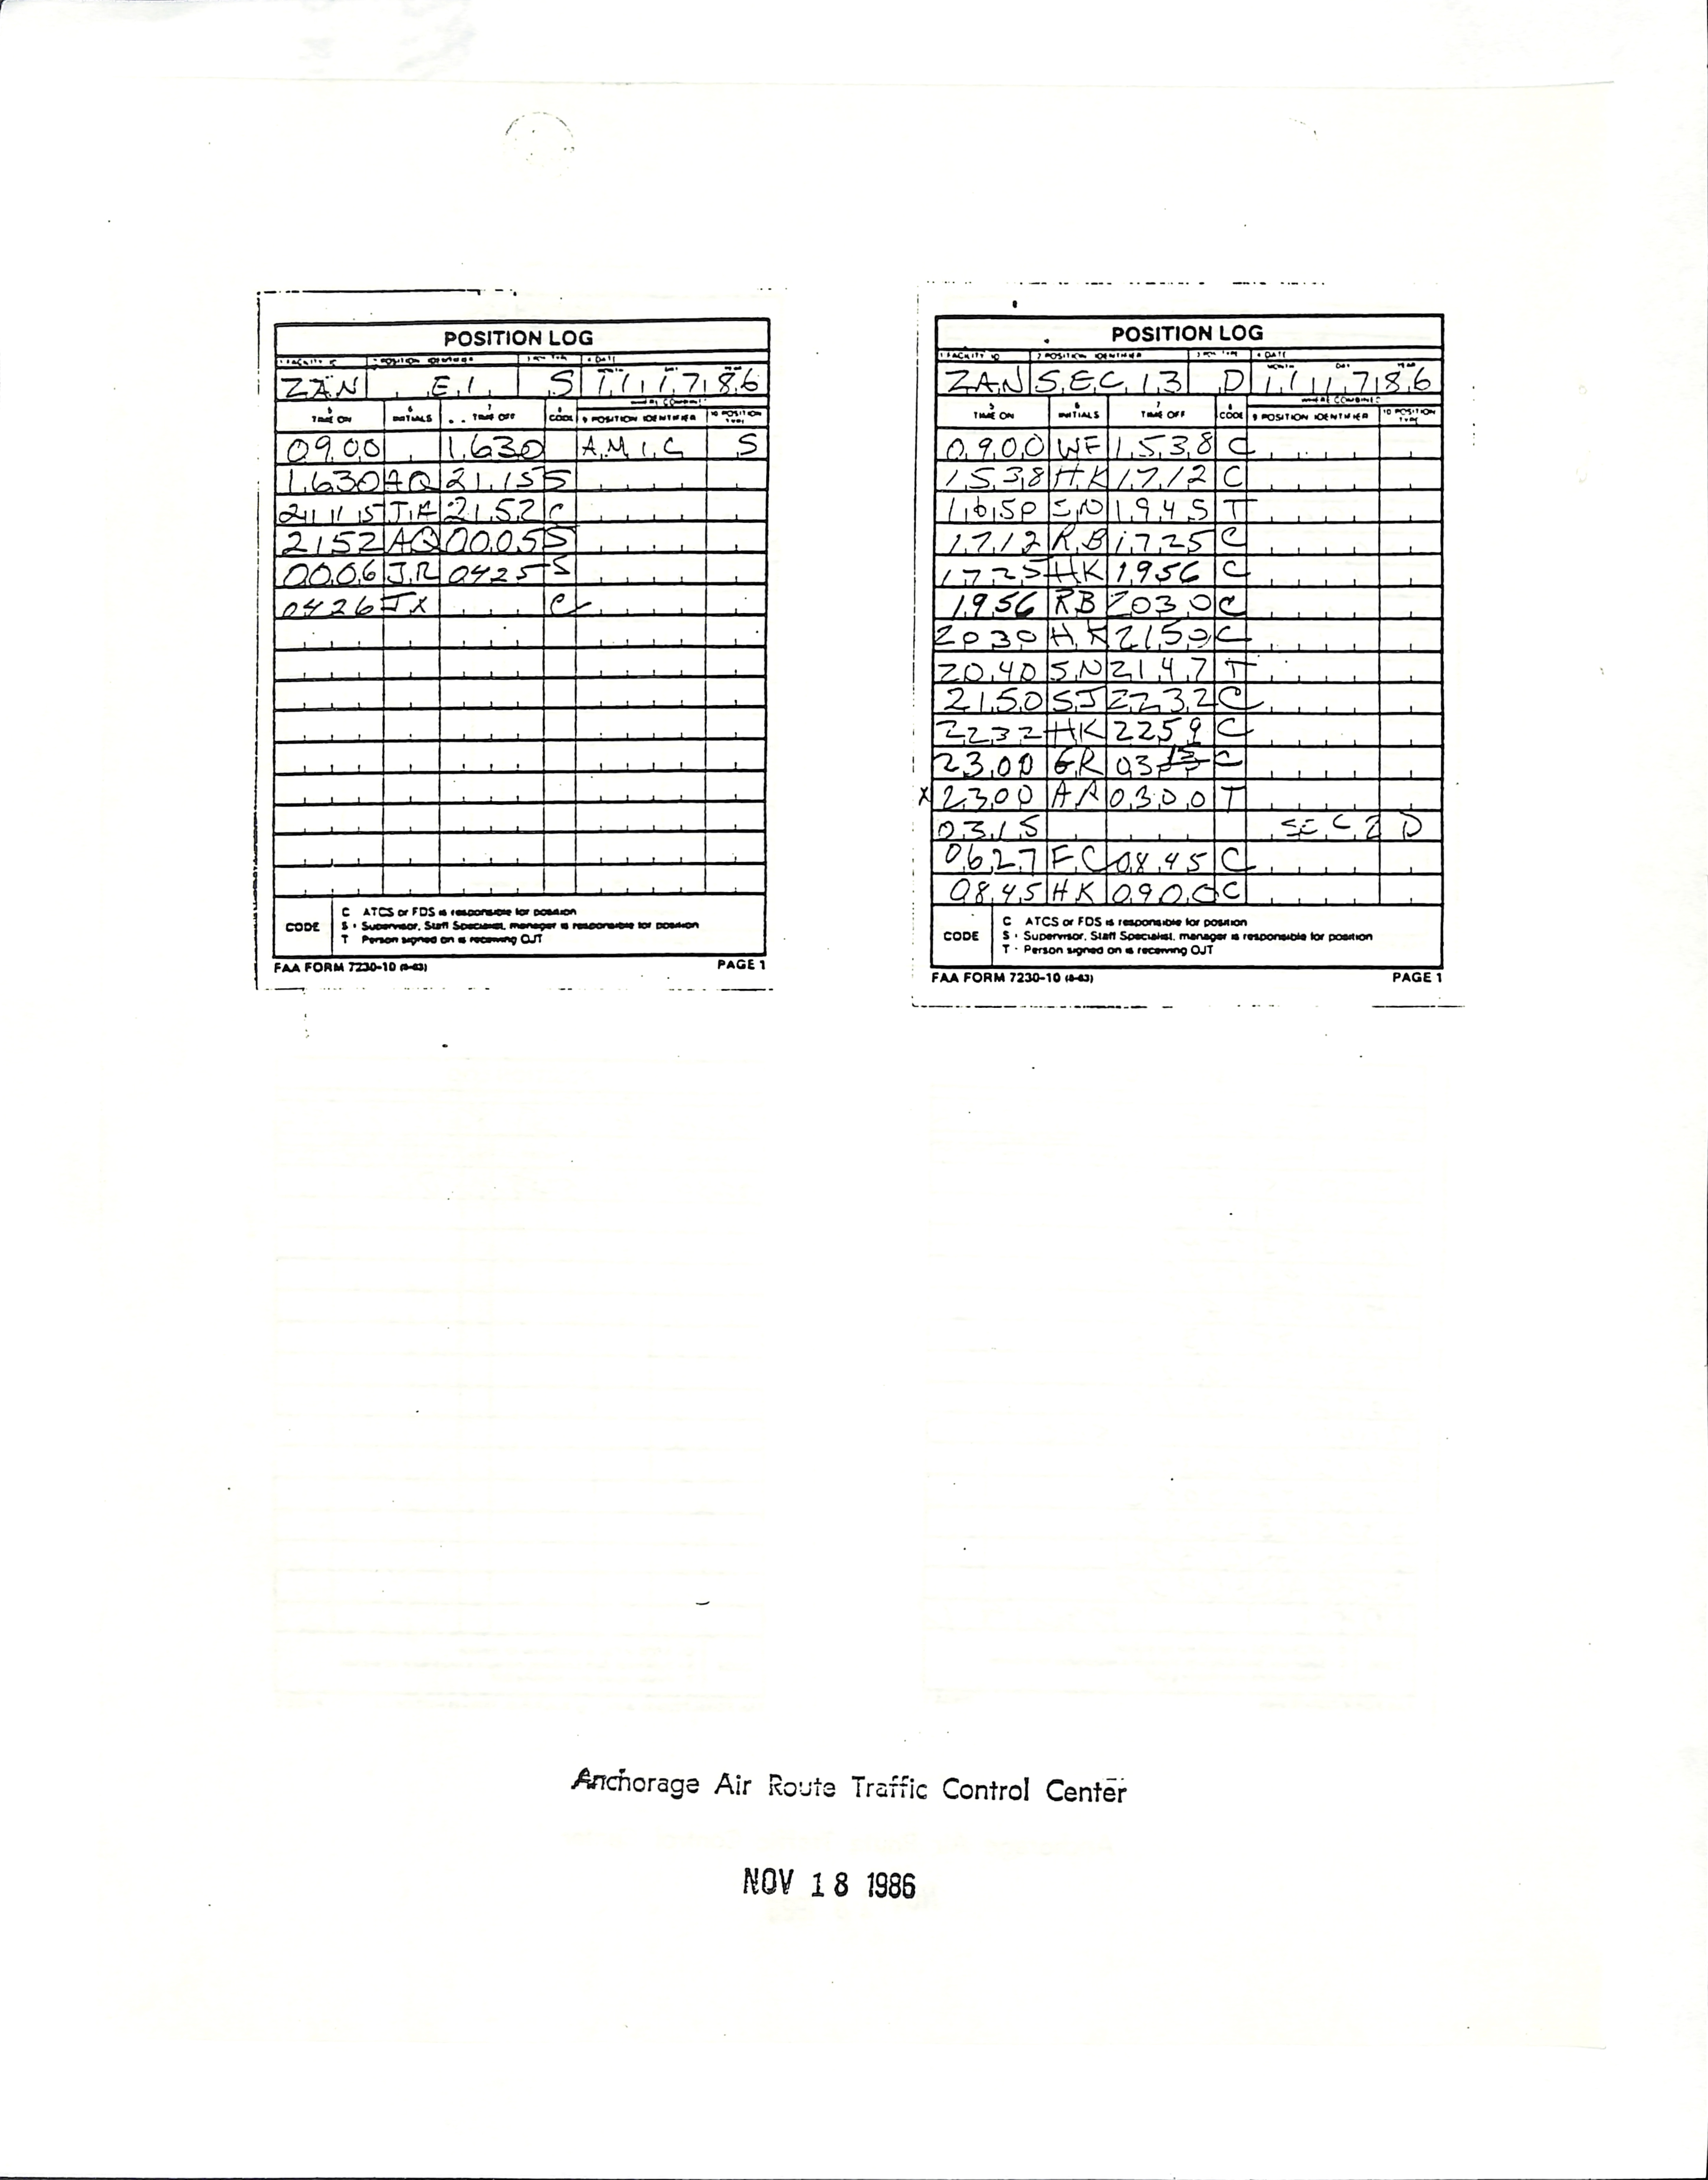 POSITION LOG
1 FACILITY ID 2 POSITION IDENTIFIER 3 POS TYPE 4 DATE
ZAN E1 S 11 17 86
WHERE COMBINED
5 TIME ON 6 INITIALS 7 TIME OFF 8 CODE 9 POSITION IDENTIFIER 10 POSITION TYPE
0900 1630 AMIC S
1630 AQ 2115 S
2115 2152 C
2152 AQ 0005 S
0006 JR 0425 S
0426 JX C
CODE
C ATCS or FDS is responsible for position
S - Supervisor, Staff Specialist, manager is responsible for position
T Person signed on is receiving OJT
FAA FORM 7230-10 (8-83) PAGE 1
POSITION LOG
1 FACILITY ID 2 POSITION IDENTIFIER 3 POS TYPE 4 DATE
MONTH DAY YEAR
ZAN SEC 13 D 11 17 86
WHERE COMBINED
5 TIME ON 6 INITIALS 7 TIME OFF 8 CODE 9 POSITION IDENTIFIER 10 POSITION TYPE
0900 WF 1538 C
1538 HK 1712 C
1650 SN 1945 T
1712 RB 1725 C
1725 HK 1956 C
1956 RB 2030 C
2030 HK 2150 C
2040 SN 2147 T
2150 SJ 2232 C
2232 HK 2259 C
2300 GR 03 C
X 2300 AA 0300 T
0315 SEC 2 D
0627 FC 0845 C
0845 HK 0900 C
CODE
C ATCS or FDS is responsible for position
S - Supervisor, Staff Specialist, manager is responsible for position
T - Person signed on is receiving OJT
FAA FORM 7230-10 (8-83) PAGE 1
Anchorage Air Route Traffic Control Center
NOV 18 1986